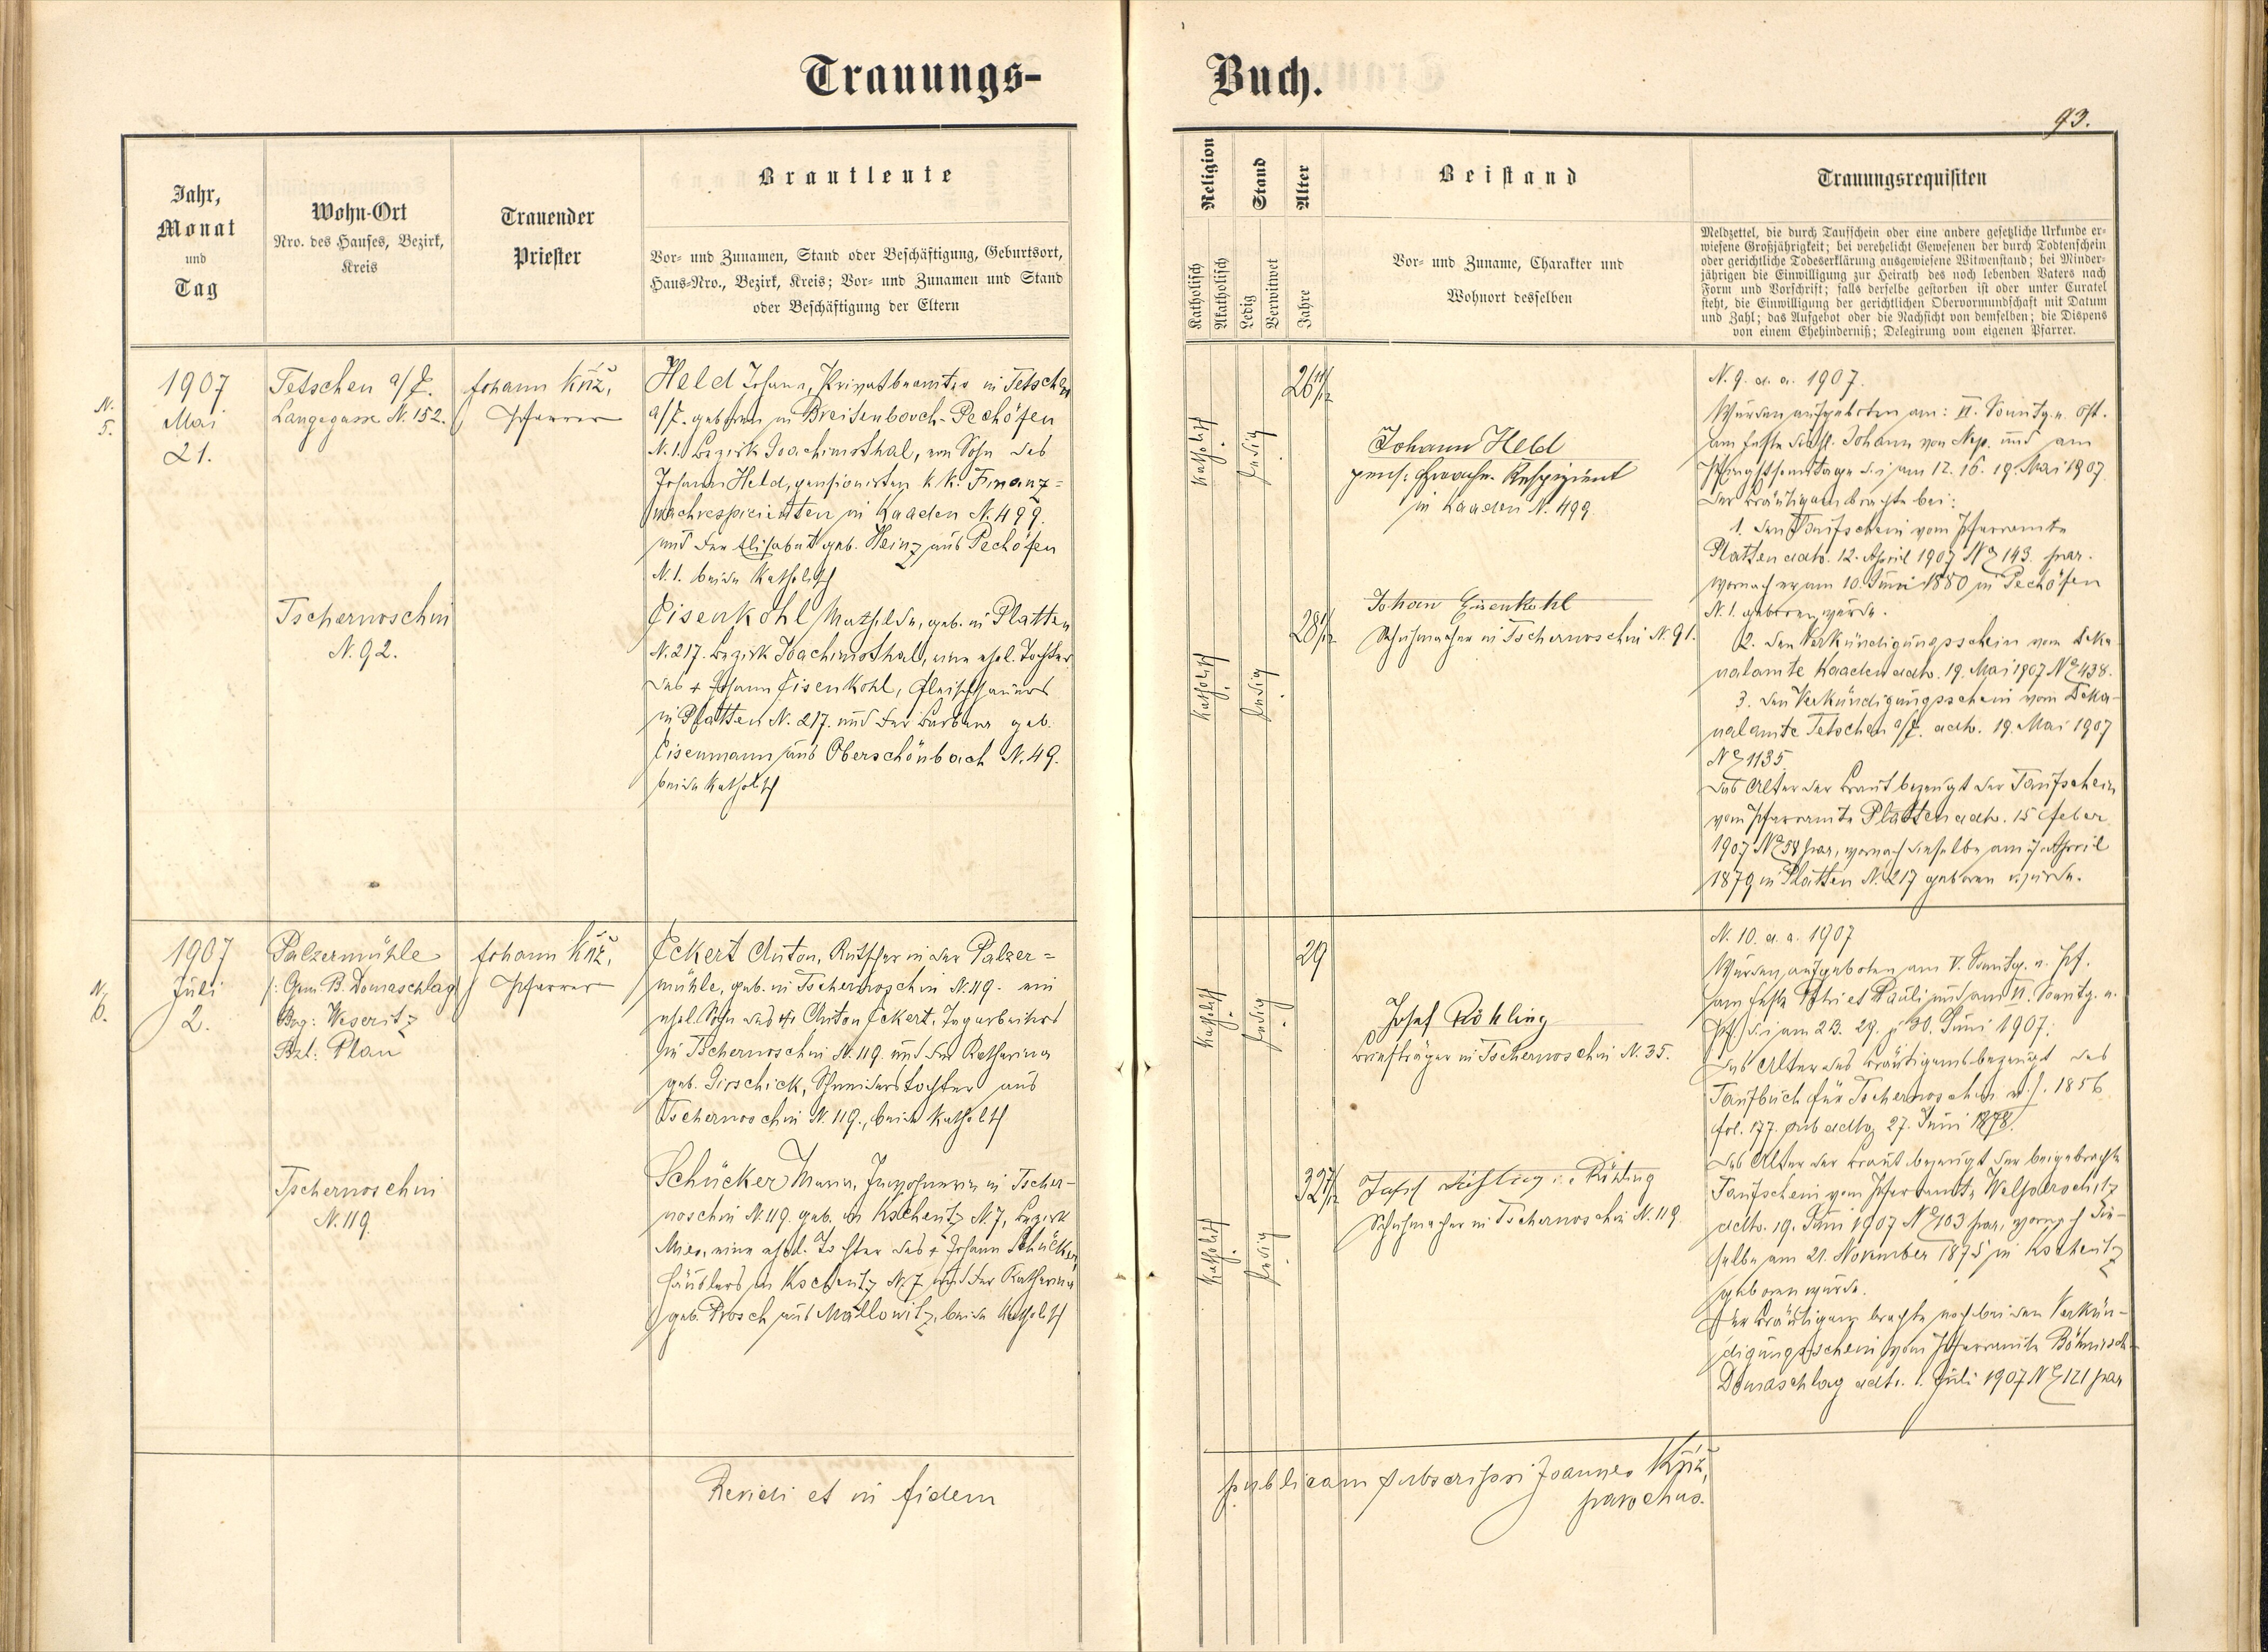 Trauungs-
Buch.
93.
Jahr,
Monat
und
Tag
Wohn-Ort
Nro. des Hauses, Bezirk,
Kreis
Trauender
Priester
Brautleute
Vor- und Zunamen, Stand oder Beschäftigung, Geburtsort,
Haus-Nro., Bezirk, Kreis; Vor- und Zunamen und Stand
oder Beschäftigung der Eltern
Religion
Katholisch
Akatholisch
Stand
Ledig
Verwitwet
Alter
Jahre
Beistand
Vor- und Zuname, Charakter und
Wohnort desselben
Trauungsrequisiten
Meldzettel, die durch Taufschein oder eine andere gesetzliche Urkunde er-
wiesene Großjährigkeit; bei verehelicht Gewesenen der durch Todtenschein
oder gerichtliche Todeserklärung ausgewiesene Witwenstand; bei Minder-
jährigen die Einwilligung zur Heirath des noch lebenden Vaters nach
Form und Vorschrift; falls derselbe gestorben ist oder unter Curatel
steht, die Einwilligung der gerichtlichen Obervormundschaft mit Datum
und Zahl; das Aufgebot oder die Nachsicht von demselben; die Dispens
von einem Ehehinderniß; Delegirung vom eigenen Pfarrer.
N.
5.
1907
Mai
21.
Tetschen a/E.
Langegasse N. 152.
Tschernoschin
N. 92.
Johann Kříž,
Pfarrer
Held Johann, Privatbeamter in Tetschen
a/E. geboren in Breitenbach-Pechöfen
N. 1. Bezirk Joachimsthal, ein Sohn des
Johann Held, pensionirten k. k. Finanz-
wachrespicienten in Kaaden N. 499.
und der Elisabet geb. Heinz aus Pechöfen
N. 1. beide katholisch
Eisenkohl Mathilde, geb. in Platten
N. 217. Bezirk Joachimsthal, eine ehel. Tochter
des + Johann Eisenkohl, Fleischhauers
in Platten N. 217. und der Barbara geb.
Eisenmann aus Oberschönbach N. 49.
beide katholisch
katholisch
ledig
26 11/12
katholisch
ledig
28 1/12
Johann Held
pens. Finanzw. Respizient
in Kaaden N. 499
Johann Eisenkohl
Schuhmacher in Tschernoschin N. 91.
N. 9. d. a. 1907.
Wurden aufgeboten am: VI. Sonntg. n. Ost.
am Feste des hl. Johann von Nep. und am
Pfingstsonntage d. i. am 12. 16. 19. Mai 1907.
Der Bräutigam brachte bei:
1. den Taufschein vom Pfarramte
Platten ddto. 12. April 1907 No 143. par.
wornach er am 10. Juni 1880 in Pechöfen
N. 1. geboren wurde.
2. den Verkündigungsschein vom Deka-
nalamte Kaaden ddto. 19. Mai 1907 No 438.
3. den Verkündigungsschein vom Deka-
nalamte Tetschen a/E. ddto. 19. Mai 1907
No 1135.
Das Alter der Braut bezeugt der Taufschein
vom Pfarramte Platten ddto. 15 Feber
1907 No 58 par, wornach dieselbe am 7. April
1879 in Platten N. 217 geboren wurde.
N.
6.
1907
Juli
2.
Palzermühle
/: Gem. B. Domaschlag
Bzg: Weseritz
Bzl: Plan
Tschernoschin
N. 119.
Johann Kříž,
Pfarrer
Eckert Anton, Kutscher in der Palzer-
mühle, geb. in Tschernoschin N. 119. ein
ehel. Sohn des + Anton Eckert, Tagarbeiters
in Tschernoschin N. 119. und der Katharina
geb. Girschick, Schneiderstochter aus
Tschernoschin N. 119., beide katholisch
Schücker Maria, Inwohnerin in Tscher-
noschin N. 119. geb. in Kscheutz N. 7, Bezirk
Mies, eine ehel. Tochter des + Johann Schücker,
Häuslers in Kscheutz N. 7 und der Katharina
geb. Prosch aus Mallowitz, beide katholisch
katholisch
ledig
29
katholisch
ledig
32 7/12
Josef Röhling
Briefträger in Tschernoschin N. 35.
Schuhmacher in Tschernoschin N. 119.
N. 10. d. a. 1907
Wurden aufgeboten am V. Sonntg. n. Pf.
am Feste Petri et Pauli und am VI. Sonntg. n.
Pf. d. i. am 23. 29. u 30. Juni 1907.
Das Alter des Bräutigams bezeugt das
Taufbuch für Tschernoschin v. J. 1856
fol. 177. sub ddto 27. Juni 1878.
Das Alter der Braut bezeugt der beigebrachte
Taufschein vom Pfarramte Welperschitz
ddto. 19. Juni 1907 No 103 par, wornach die-
selbe am 21. November 1875 in Kscheutz
geboren wurde.
Der Bräutigam brachte noch bei den Verkün-
digungsschein vom Pfarramte Böhmisch-
Domaschlag ddto. 1. Juli 1907 No 121 par
Revidi et in fidem
publicam subscripsi Joannes Kříž,
parochus.